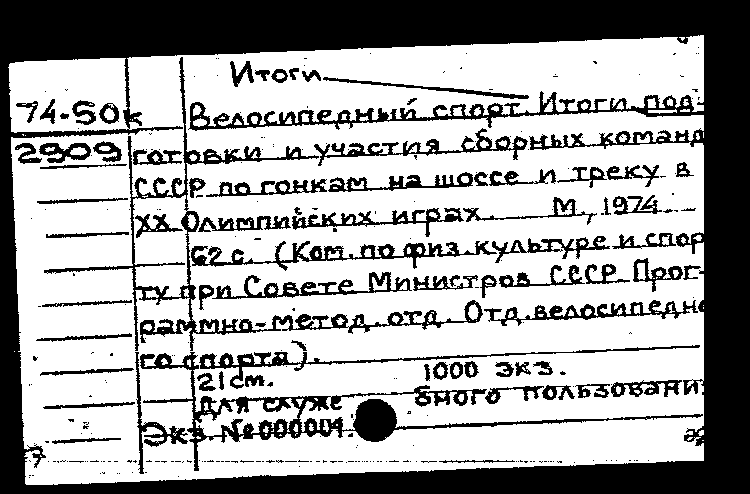 Итоги
74-50к Велосипедный спорт. Итоги под-
2909 готовки и участия сборных команд
СССР по гонкам на шоссе и треку в
XX Олимпийских играх. М., 1974.
62 с. (Ком. по физ. культуре и спор
ту при Совете Министров СССР. Прог-
раммно-метод. отд. Отд. велосипедно
го спорта).
21 cm. 1000 экз.
Для служе бного пользовани
Экз. №000001.